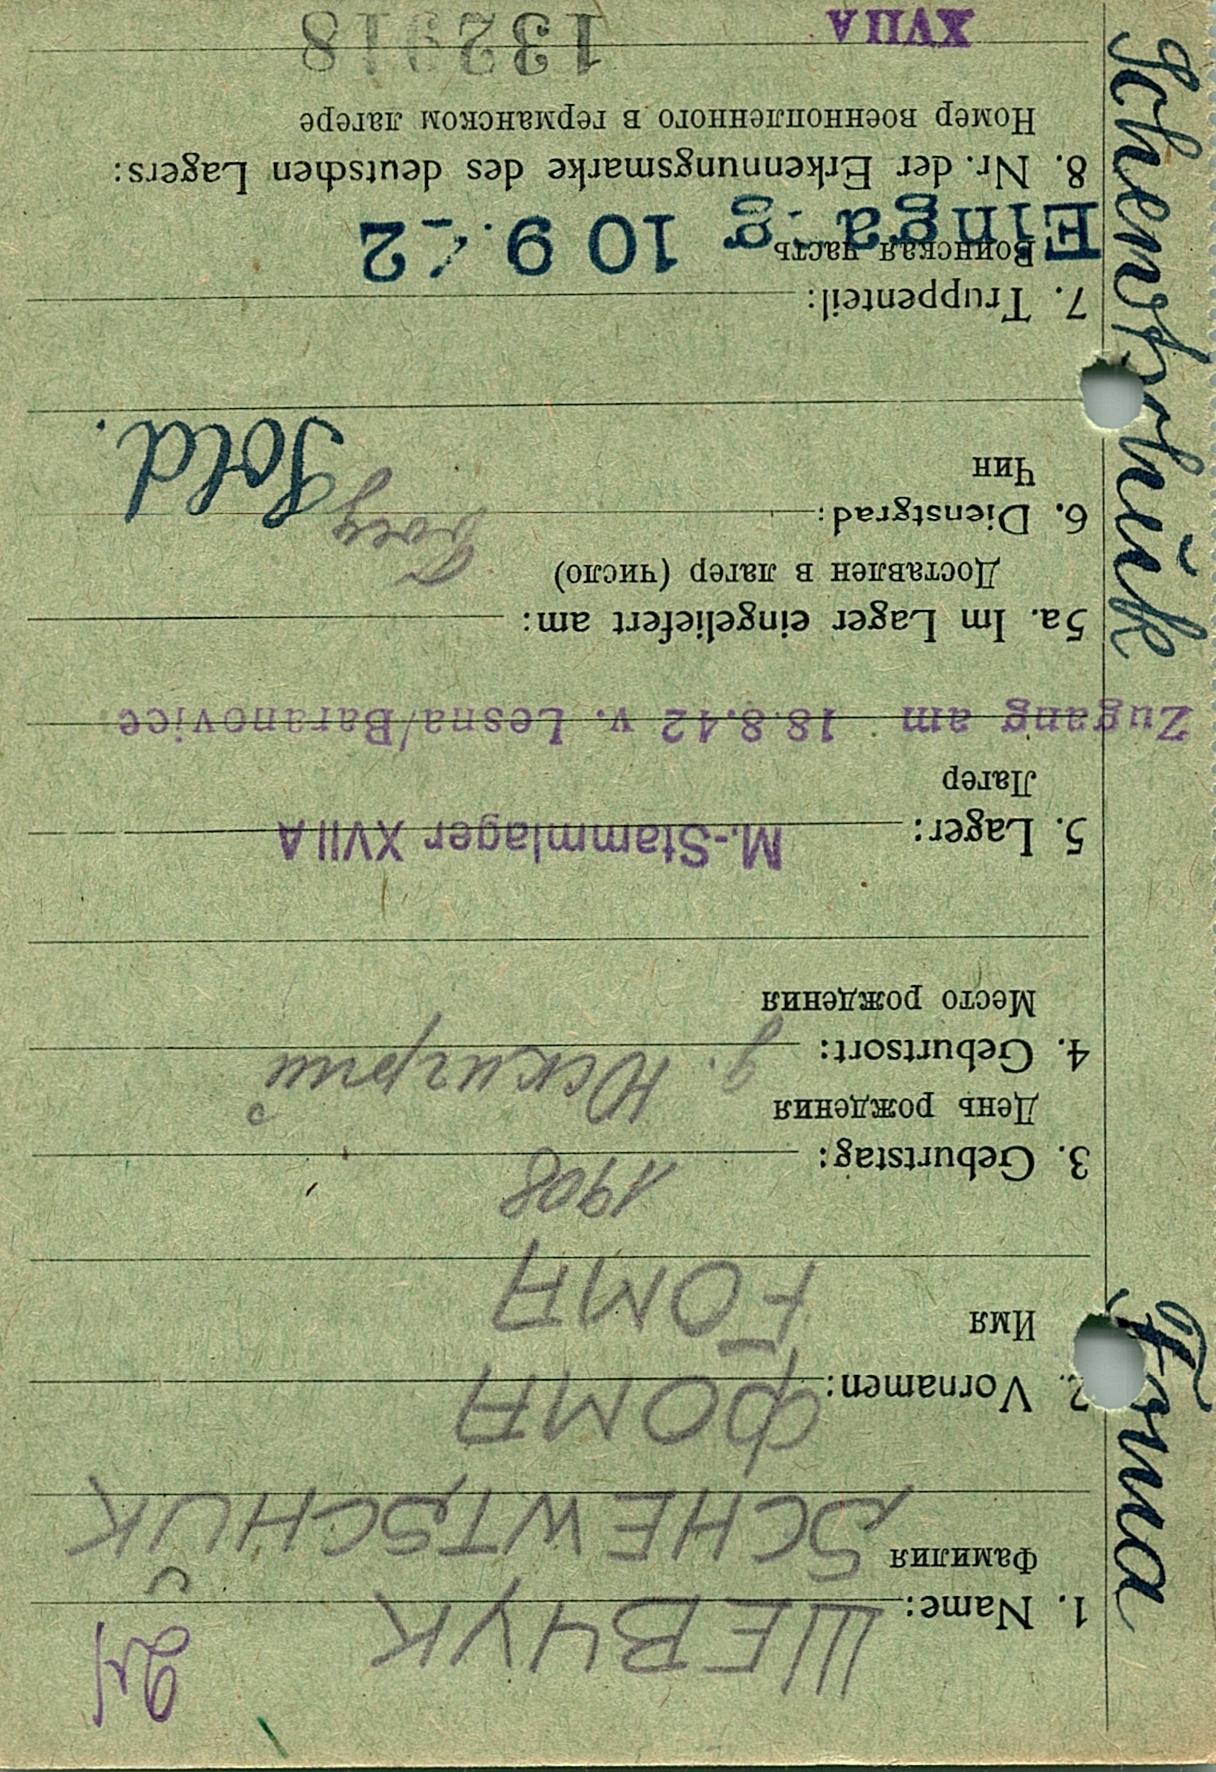 1. Name: ШЕВЧУК
Фамилия SCHEWTSCHUK
2. Vornamen: ФОМА
Имя FOMA
3. Geburtstag: 1908
День рождения
4. Geburtsort: д.
Место рождения
5. Lager: M.-Stammlager XVII A
Лагер
Zugang am 18.8.42 v. Lesna/Baranovice
5a. Im Lager eingeliefert am:
Доставлен в лагер (число)
6. Dienstgrad: боец Sold.
Чин
7. Truppenteil:
Воинская часть
Eingang 10 9. 42
8. Nr. der Erkennungsmarke des deutschen Lagers:
Номер военнопленного в германском лагере
XVIIA 132918
Foma